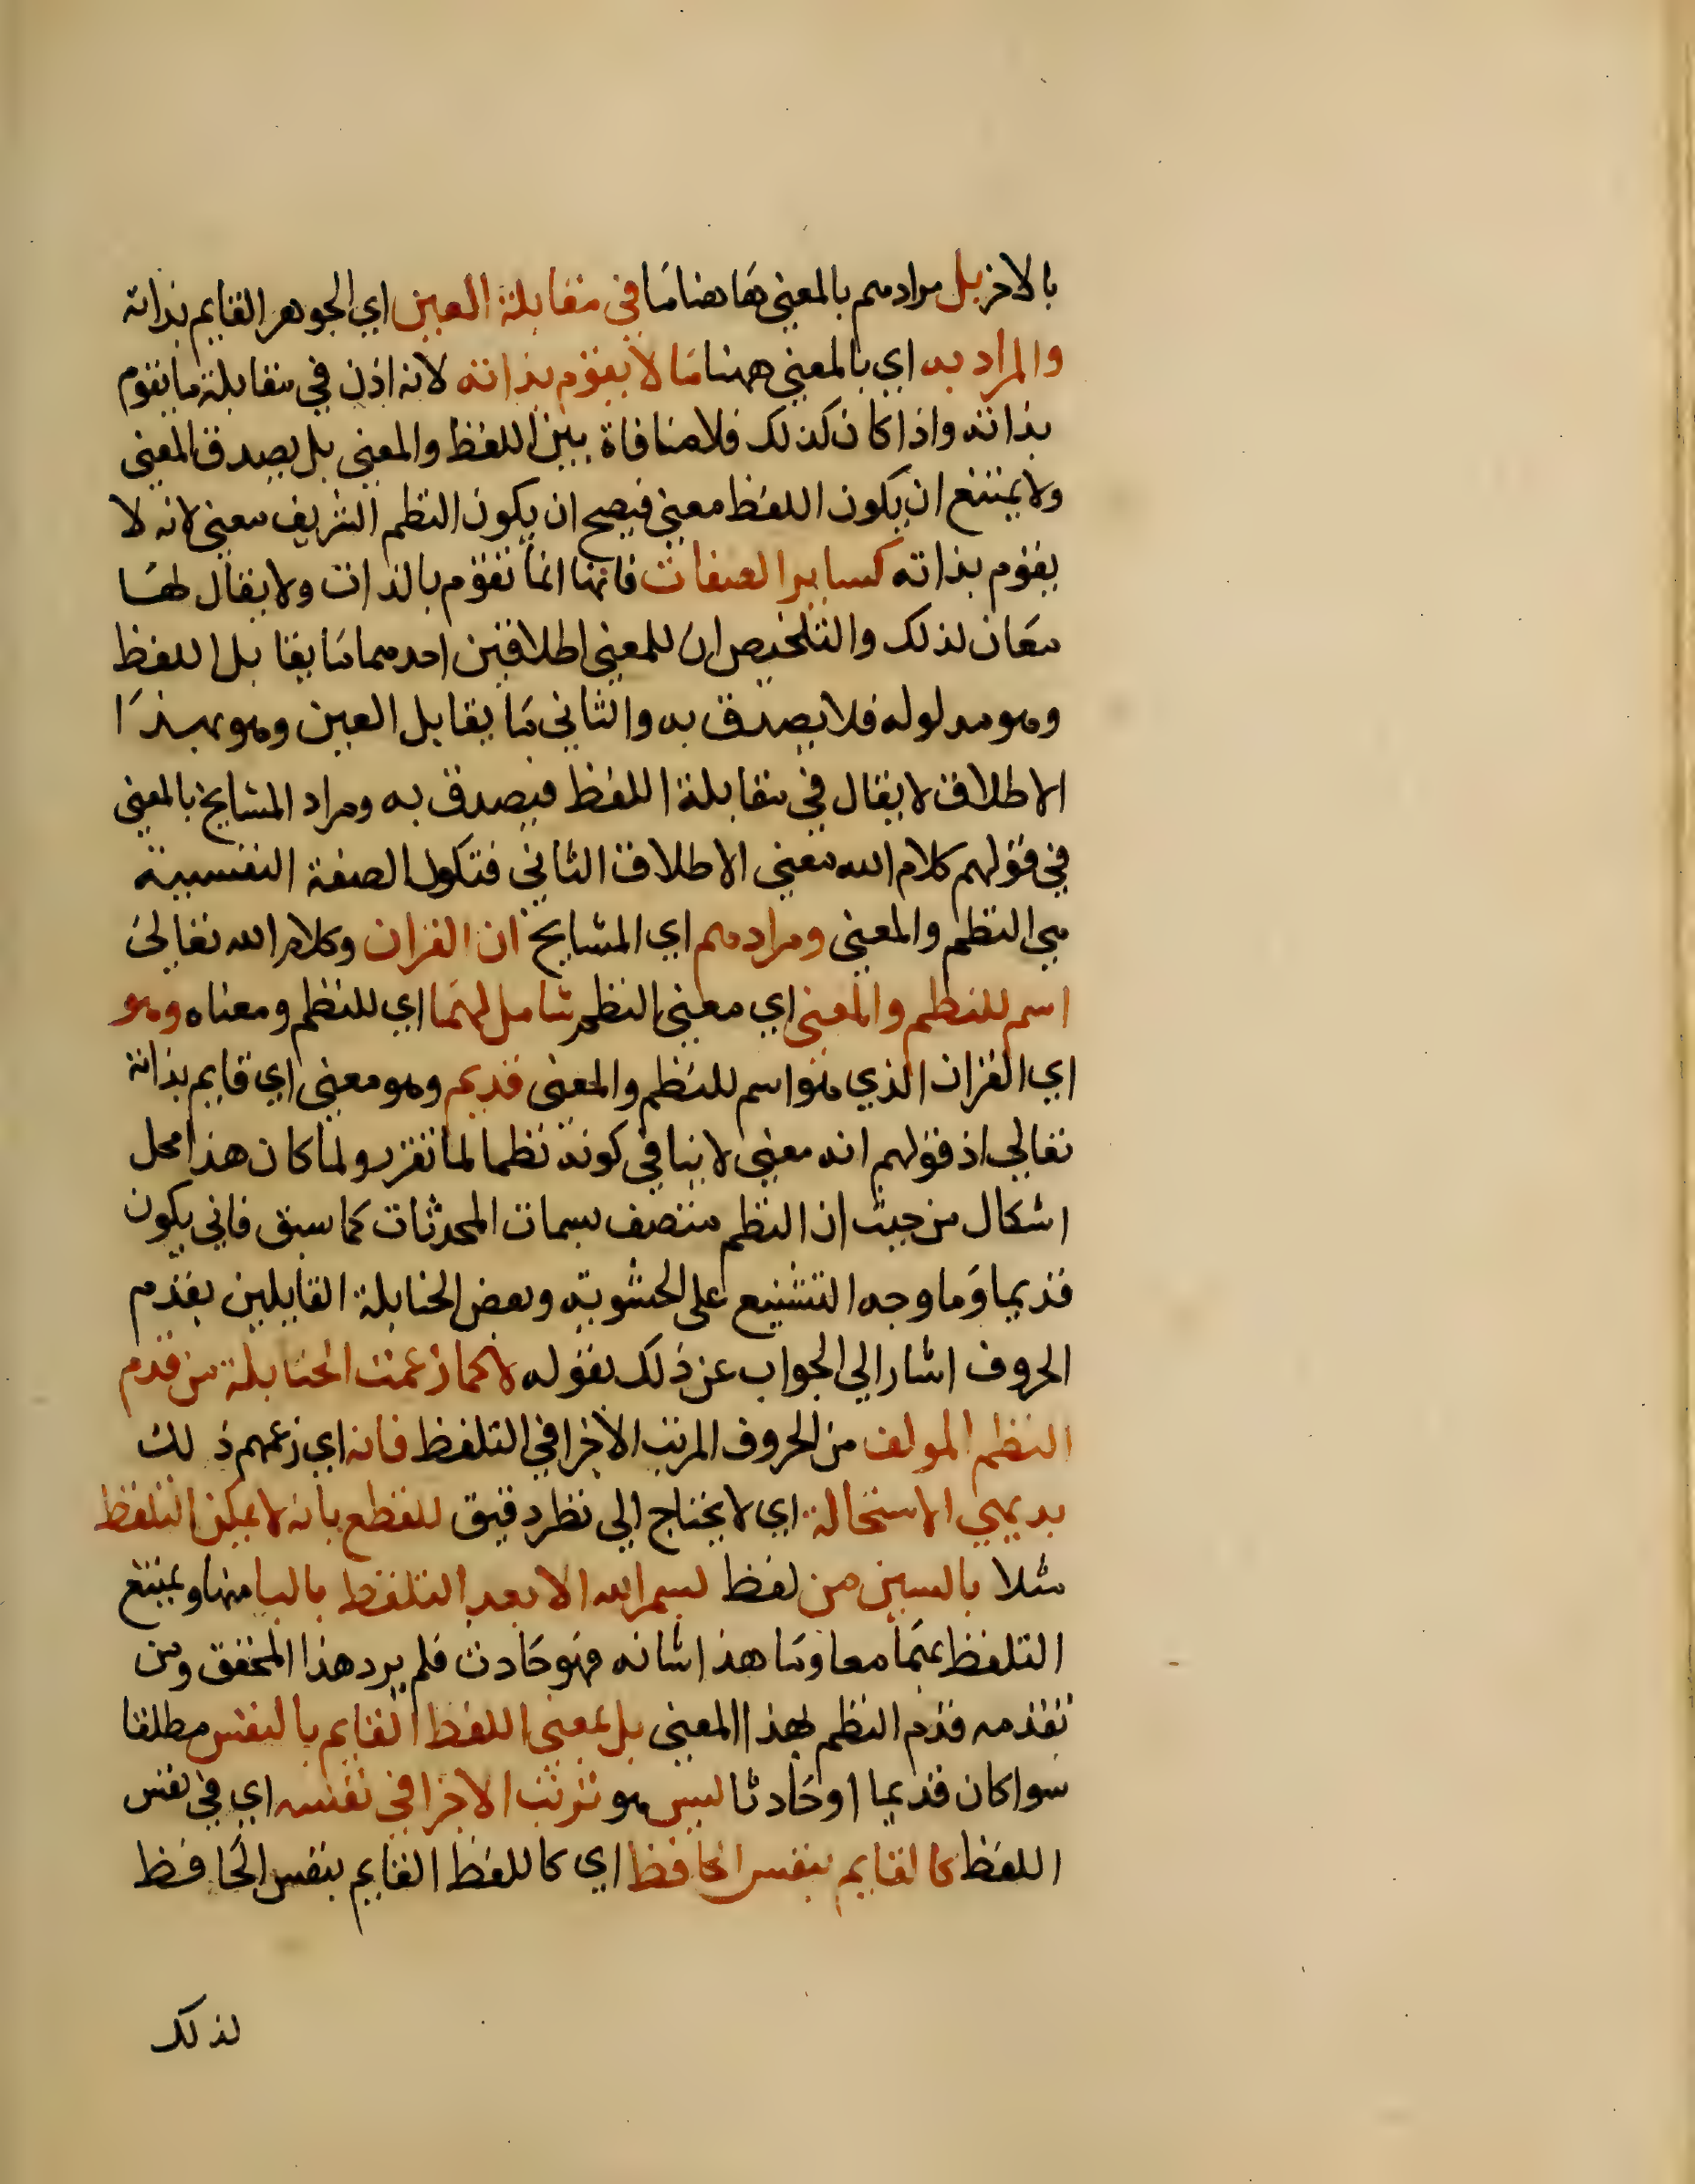 بالاخر بل مرادهم بالمعني هاهنا ما في مقابلة العين اي الجوهر القايم بذاته
والمراد به اي بالمعني ههنا ما لا يقوم بذاته لانه اذن في مقابلة ما يقوم
بذاته واذا كان كذلك فلا منافاة بين اللفظ والمعني بل يصدق المعني
ولا يمتنع ان يكون اللفظ معني فيصح ان يكون النظم الشريف معني لانه لا
يقوم بذاته كساير الصفات فانها انما تقوم بالذات ولا يقال لها
معان لذلك والتلخيص ان للمعني اطلاقين احدهما ما يقابل اللفظ
وهو مدلوله فلا يصدق به والثاني ما يقابل العين وهو بهذا
الاطلاق لا يقال في مقابلة اللفظ فيصدق به ومراد المشايخ بالمعني
في قولهم كلام الله معني الاطلاق الثاني فتكون الصفة النفسية
هي النظم والمعني ومرادهم اي المشايخ ان القران وكلام الله تعالي
اسم للنظم والمعني اي معني النظم شامل لهما اي للنظم ومعناه وهو
اي القران الذي هو اسم للنظم والمعني قديم وهو معني اي قايم بذاته
تعالي اذ قولهم انه معني لا ينافي كونه نظما لما تقرر ولما كان هذا محل
اشكال من حيث ان النظم متصف بسمات المحدثات كما سبق فاني يكون
قديما وما وجه التشنيع علي الحشوية وبعض الحنابلة القايلين بقدم
الحروف اشار الي الجواب عن ذلك بقوله لا كما زعمت الحنابلة من قدم
النظم المولف من الحروف المرتب الاجزا في التلفظ فانه اي زعمهم ذلك
بديهي الاستحالة اي لا يحتاج الي نظر دقيق للقطع بانه لا يمكن التلفظ
مثلا بالسين من لفظ بسم الله الا بعد التلفظ بالبا منها ويمتنع
التلفظ بهما معا وما هذا شانه فهو حادث فلم يرد هذا المحقق ومن
تقدمه قدم النظم بهذا المعني بل بمعني اللفظ القايم بالنفس مطلقا
سوا كان قديما او حادثا ليس هو ترتب الاجزا في نفسه اي في نفس
اللفظ كالقايم بنفس الحافظ اي كاللفظ القايم بنفس الحافظ
لذلك